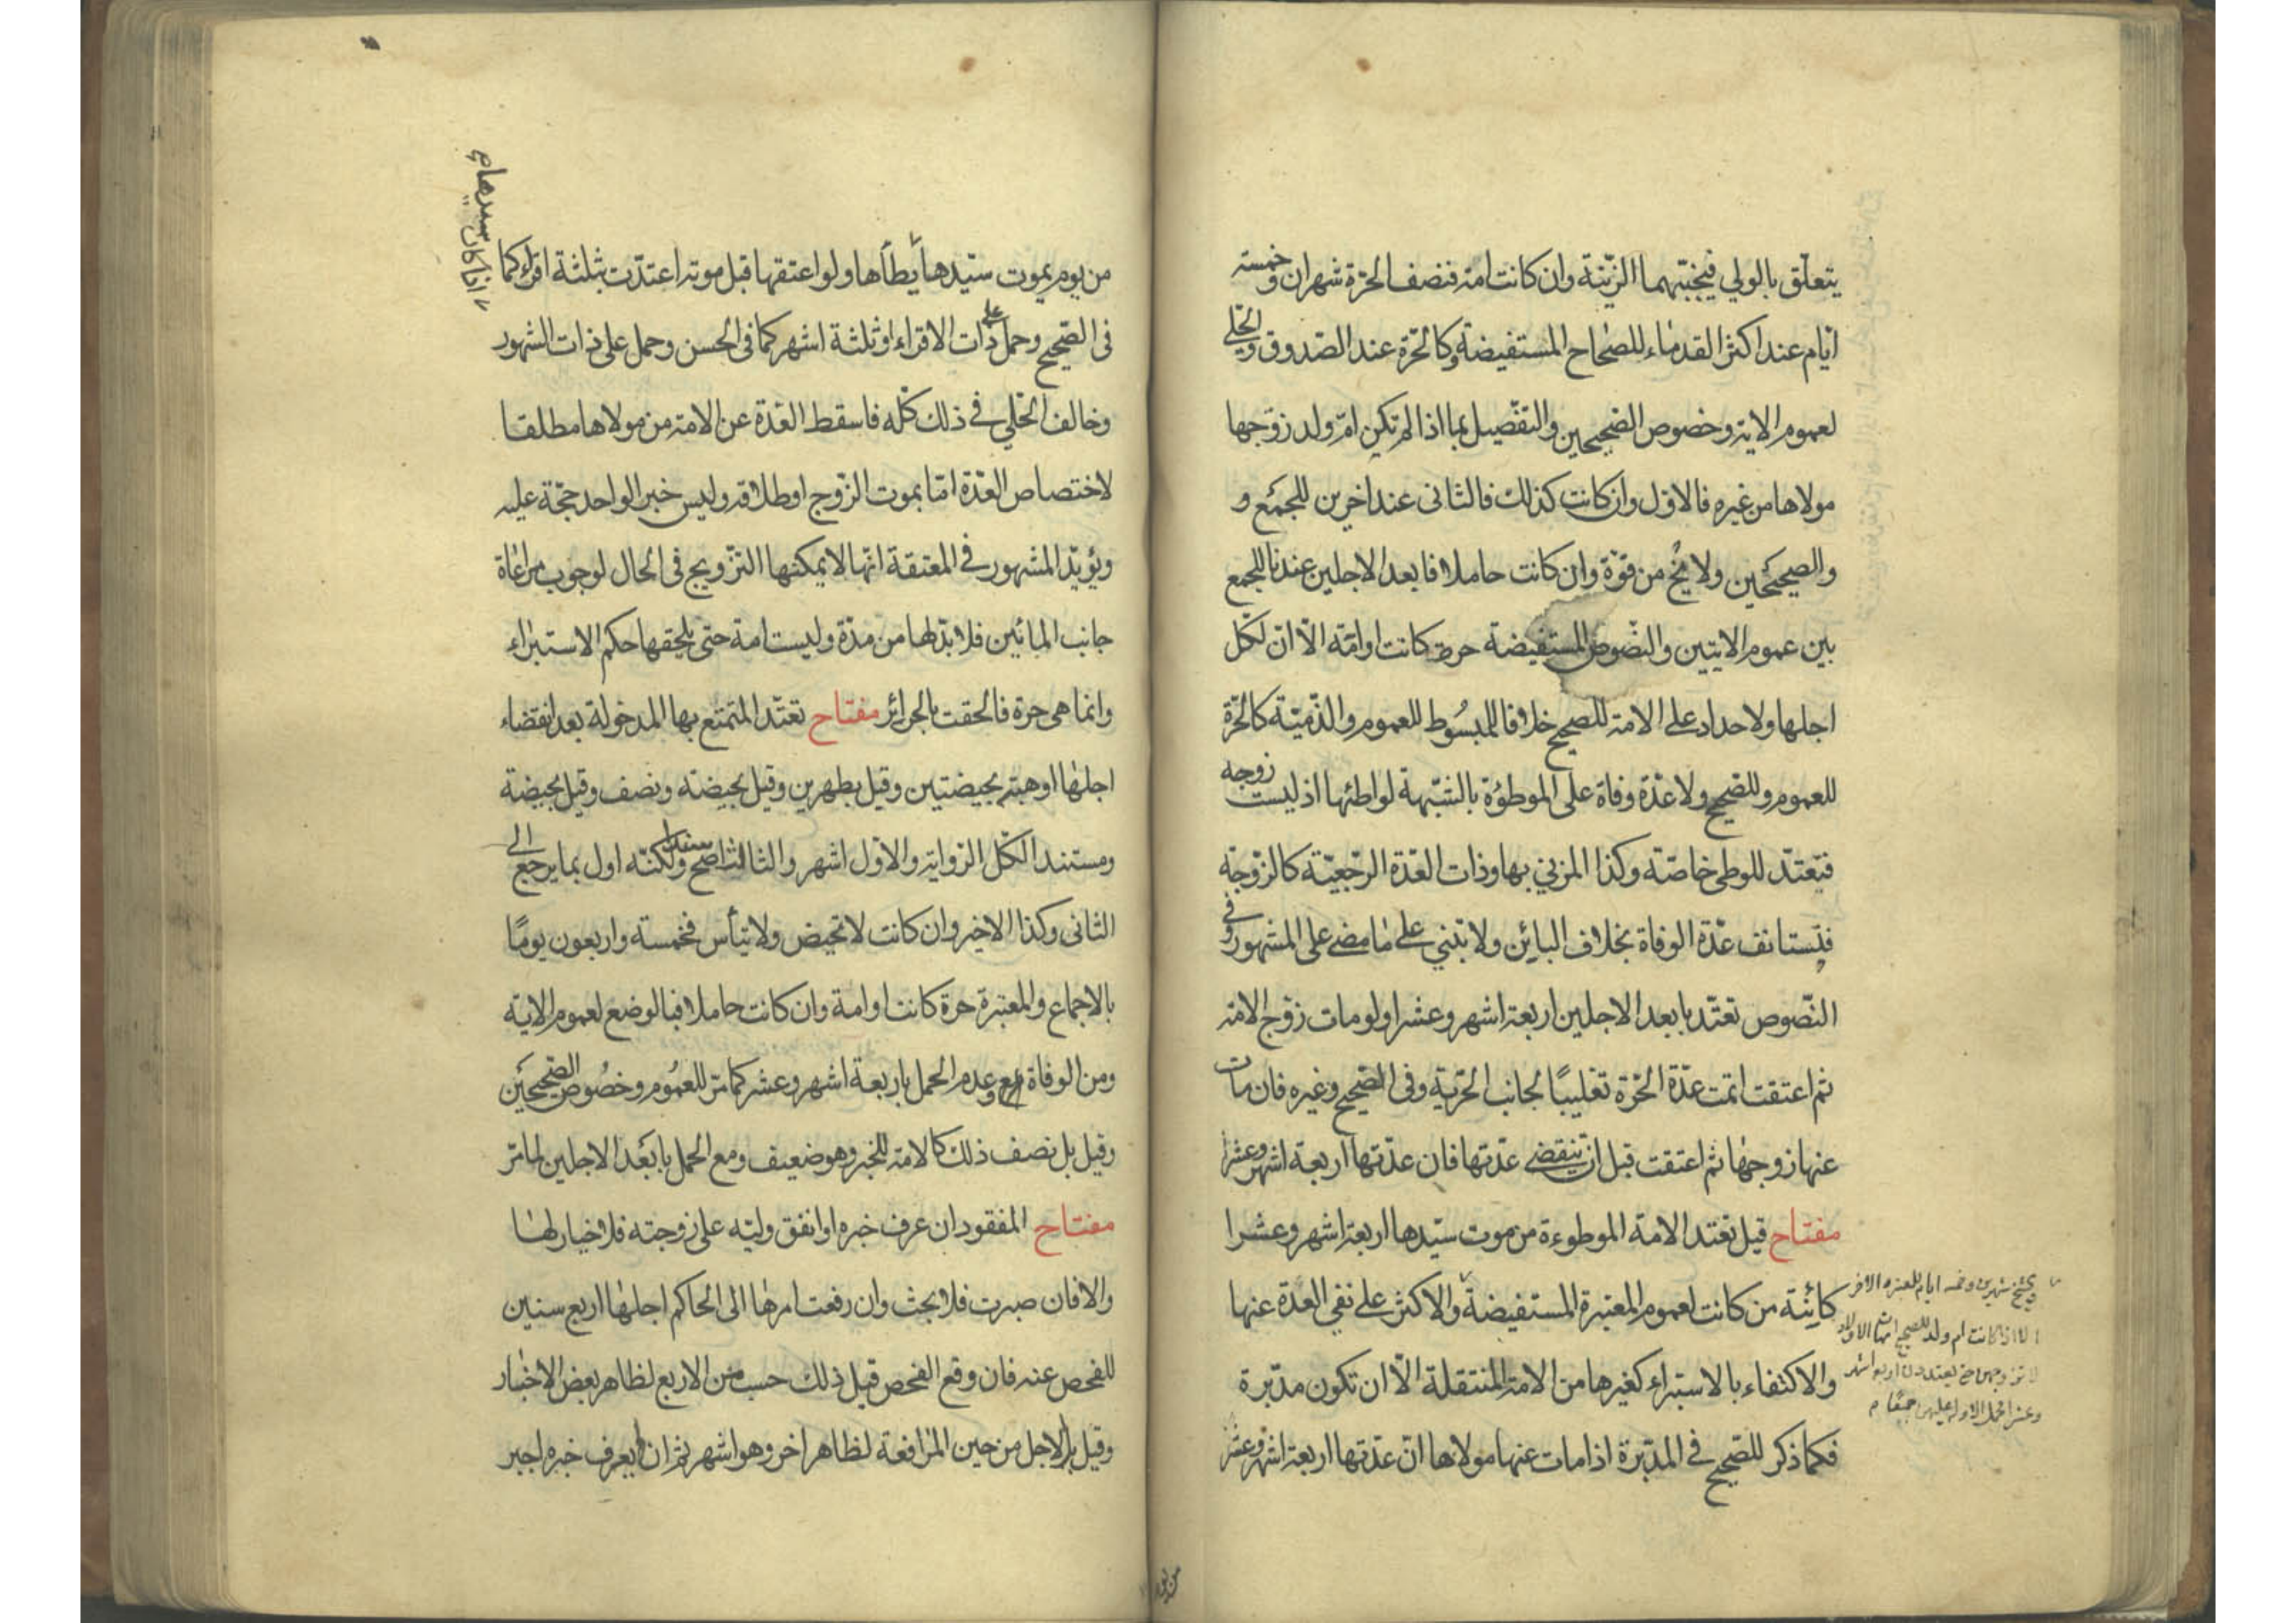 يتعلّق بالولي فيجنّبهما الزّينة وان كانت امة فنصف الحرّة شهران وخمسة
ايّام عند اكثر القدماء للصّحاح المستفيضة وكالحرّة عند الصّدوق والحلّي
لعموم الاية وخصوص الصّحيحين والتفصيل بما اذا لم تكن امّ ولد زوّجها
مولاها من غيره فالاوّل وان كانت كذلك فالثانى عند اخرين للجمع و
والصحيحين ولا يخ من قوّة وان كانت حاملا فابعد الاجلين عندنا للجمع
بين عموم الايتين والنّصوص المستفيضة حرة كانت او امّة الّا انّ لكلّ
اجلها ولا حداد على الامة للصحيح خلافا للمبسُوط للعموم والذّميّة كالحرّة
للعموم وللصّحيح ولا عدّة وفاة على الموطؤة بالشّبهة لواطئها اذ ليست زوجه
فتعتدّ للوطى خاصّة وكذا المزني بها وذات العدّة الرجعيّة كالزّوجة
فتستانف عدّة الوفاة بخلاف البائن ولا تبني على ما مضى على المشهور وفي
النّصوص تعتدّ بابعد الاجلين اربعة اشهر وعشرا ولو مات زوج الامة
ثم اعتقت اتمت عدّة الحرّة تغليبًا لجانب الحرّية وفى الصّحيح وغيره فان مات
عنها زوجها ثم اعتقت قبل ان تنقضي عدّتها فان عدّتها اربعة اشهر وعشرا
مفتاح قيل تعتد الامة الموطوءة من موت سيّدها اربعة اشهر وعشرا
كائنة من كانت لعموم المعتبرة المستفيضة والاكثر على نفي العدّة عنها
والاكتفاء بالاستبراء كغيرها من الامة المنتقلة الّا ان تكون مدّبرة
فكما ذكر للصّحيح في المدّبرة اذا مات عنها مولاها انّ عدّتها اربعة اشهر وعشرا
شهرين وخمسة ايام للمعتبرة الاخر
الا اذا كانت ام ولد للصحيح امهات الاولاد
وعشرا
من يوم
من يوم يموت سيّدها يطأها ولو اعتقها قبل موته اعتدّت بثلثة اقراء كما
اذا كان سيدها
فى الصّحيح وحمل على ذات الاقراء او ثلثة اشهر كما فى الحسن وحمل على ذات الشهور
وخالف الحلّي في ذلك كلّه فاسقط العدّة عن الامة من مولاها مطلقا
لاختصاص العدّة امّا بموت الزّوج او طلاقه وليس خبر الواحد حجّة عليه
ويؤيّد المشهور في المعتقة انّها لا يمكنها التزويج فى الحال لوجوب مراعاة
جانب المائين فلا بدّ لها من مدّة وليست امة حتى يلحقها حكم الاستبراء
وانما هي حرة فالحقت بالحرائر مفتاح تعتدّ المتمتّع بها المدخولة بعد انقضاء
اجلها او هبته بحيضتين وقيل بطهرين وقيل بحيضة ونصف وقيل بحيضة
ومستند الكلّ الرّواية والاوّل اشهر والثالث اصحّ سندا ولكنّه اول بما يرجع الى
الثانى وكذا الاخير وان كانت لا تحيض ولا تيأس فخمسة واربعون يومًا
بالاجماع والمعتبرة حرّة كانت او امة وان كانت حاملا فبالوضع لعموم الاية
ومن الوفاة مع عدم الحمل باربعة اشهر وعشر كما مرّ للعمُوم وخصُوص الصّحيحين
وقيل بل نصف ذلك كالامة للخبر وهو ضعيف ومع الحمل بابعد الاجلين لما مرّ
مفتاح المفقود ان عرف خبره او انفق وليّه على زوجته فلا خيار لها
والا فان صبرت فلا بحث وان رفعت امرها الى الحاكم اجلها اربع سنين
للفحص عنه فان وقع الفحص قبل ذلك حسب من الاربع لظاهر بعض الاخبار
وقيل بل الاجل من حين المرافعة لظاهر اخر وهو اشهر ثم ان لم يعرف خبره اجبر